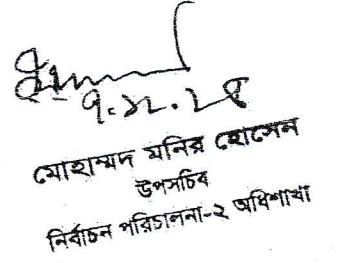 ৭.১২.২৫
মোহাম্মদ মনির হোসেন
উপসচিব
নির্বাচন পরিচালনা-২ অধিশাখা